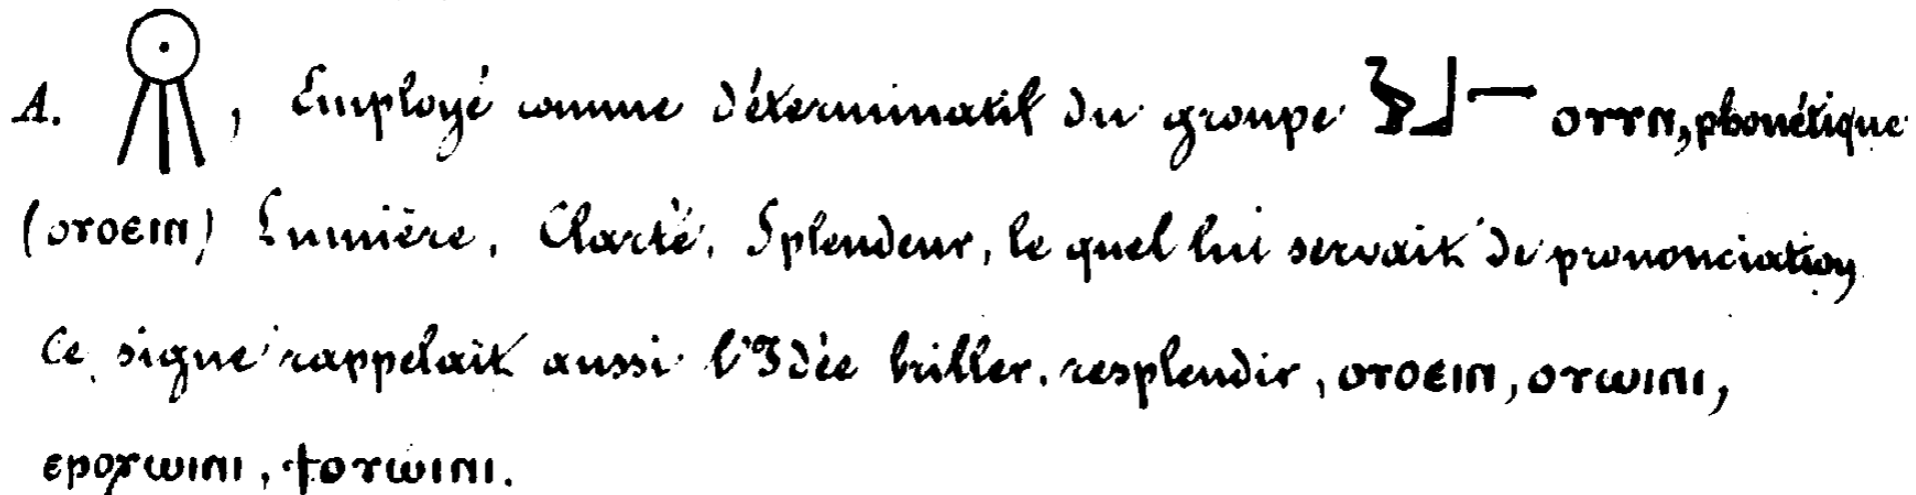 A. 𓇶, Employé comme déterminatif du groupe 𓅱𓃀𓈖 ⲟⲩⲩⲛ, phonétique
(ⲟⲩⲟⲉⲓⲛ) Lumière, Clarté, Splendeur, le quel lui servait de prononciation,
Ce signe rappelait aussi l'Idée briller, resplendir, ⲟⲩⲟⲉⲓⲛ, ⲟⲩⲱⲓⲛⲓ,
ⲉⲣⲟⲩⲱⲓⲛⲓ, ϯⲟⲩⲱⲓⲛⲓ.